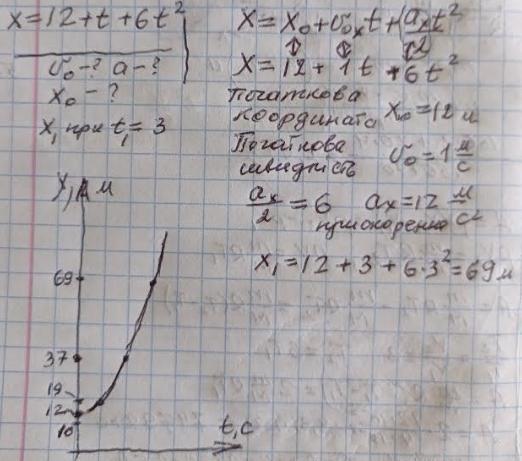 x=12+t+6t²
v₀-? a-?
x₀-?
x₁ при t₁=3
x=x₀+v₀ₓt+aₓt²/2
x=12+1t+6t²
Початкова
координата x₀=12 м
Початкова
швидкість v₀=1 м/с
aₓ/2=6 aₓ=12 м/с²
прискорення
x₁=12+3+6·3²=69 м
x, м
69
37
19
12
10
t, c